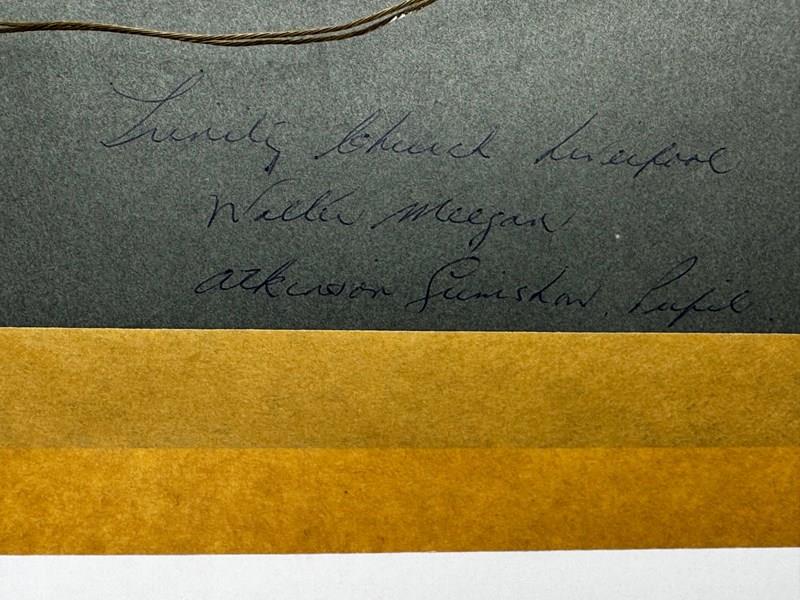 Trinity Church Liverpool
Walter Meegan
Atkinson Grimshaw. Pupil.